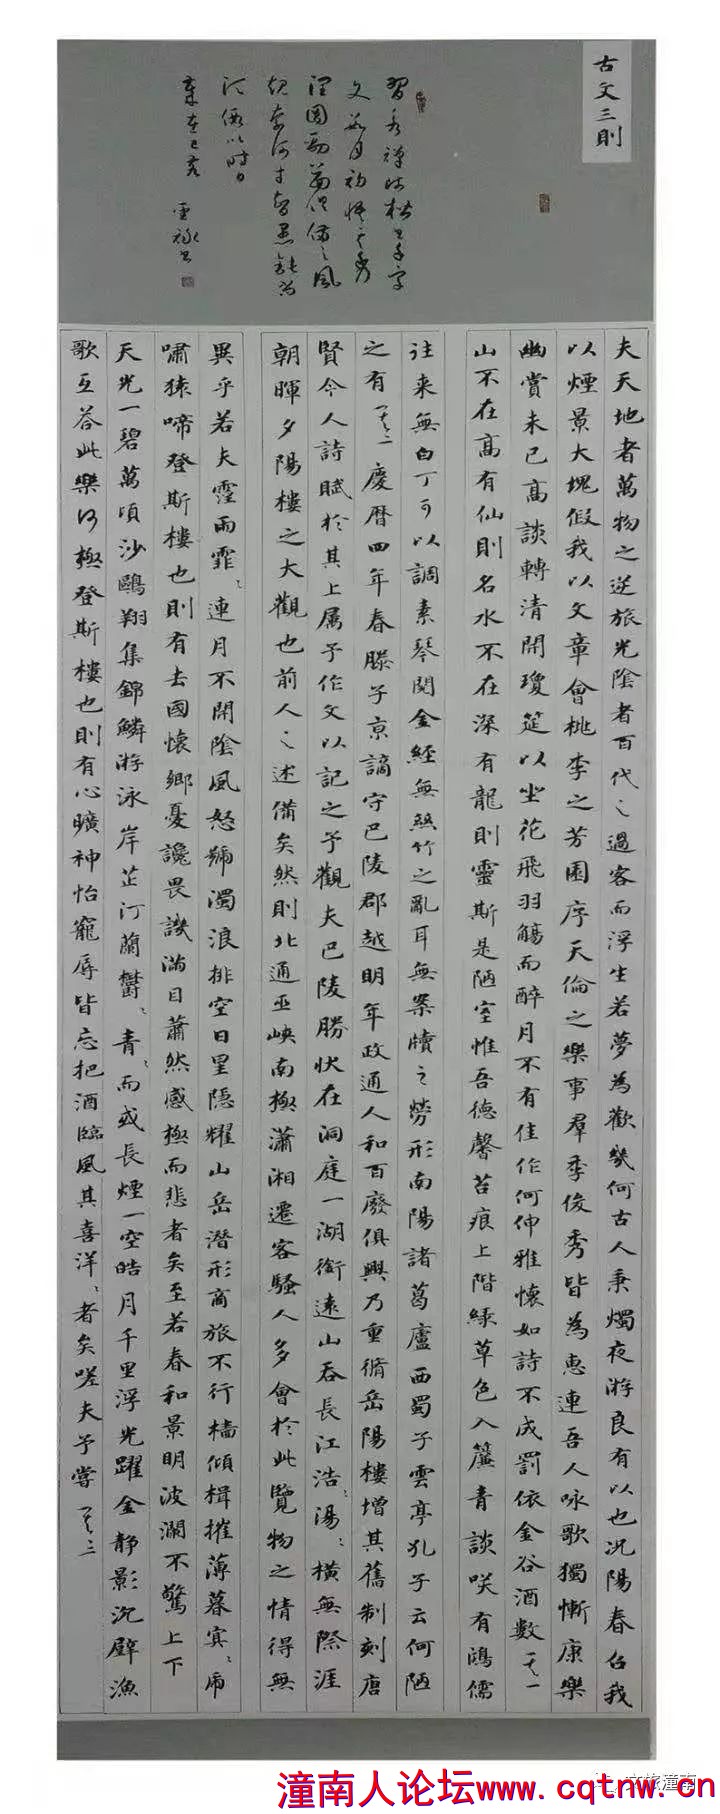 古文三則
夫天地者萬物之逆旅光陰者百代〻過客而浮生若夢為歡幾何古人秉燭夜游良有以也況陽春召我
以煙景大塊假我以文章會桃李之芳園序天倫之樂事羣季俊秀皆為惠連吾人咏歌獨慚康樂
幽賞未已高談轉清開瓊筵以坐花飛羽觴而醉月不有佳作何伸雅懷如詩不成罰依金谷酒數 其一
山不在高有仙則名水不在深有龍則靈斯是陋室惟吾德馨苔痕上階綠草色入簾青談咲有鴻儒
往来無白丁可以調素琴閱金經無絲竹之亂耳無案牘之勞形南陽諸葛廬西蜀子雲亭孔子云何陋
之有 其二 慶曆四年春滕子京謫守巴陵郡越明年政通人和百廢俱興乃重脩岳陽樓增其舊制刻唐
賢今人詩賦於其上属予作文以記之予觀夫巴陵勝状在洞庭一湖銜遠山吞長江浩〻湯〻橫無際涯
朝暉夕陽樓之大觀也前人〻述備矣然則北通巫峽南極瀟湘遷客騷人多會於此覽物之情得無
異乎若夫霪雨霏〻連月不開陰風怒號濁浪排空日星隱耀山岳潛形商旅不行檣傾楫摧薄暮冥〻虎
嘯猿啼登斯樓也則有去國懷鄉憂讒畏譏滿目蕭然感極而悲者矣至若春和景明波瀾不驚上下
天光一碧萬頃沙鷗翔集錦鱗游泳岸芷汀蘭鬱〻青〻而或長煙一空皓月千里浮光躍金静影沉璧漁
歌互答此樂何極登斯樓也則有心曠神怡寵辱皆忘把酒臨風其喜洋〻者矣嗟夫予嘗 其三
文旅潼南
潼南人论坛www.cqtnw.cn